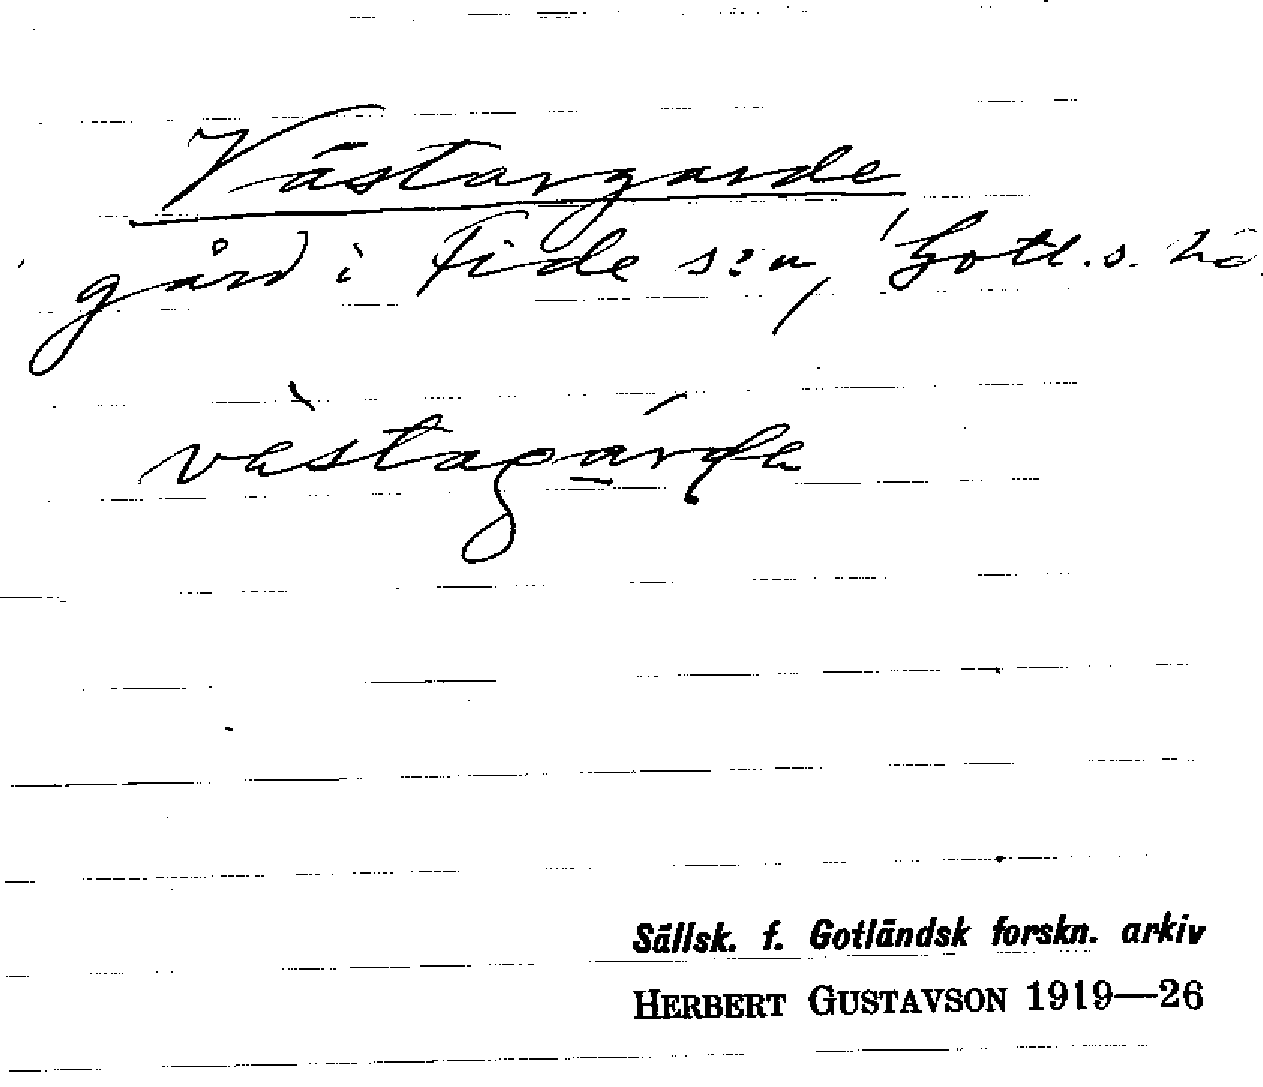 Västargarde
gård i Fide s:n, Gotl.s. hd.
västagarda
Sällsk. f. Gotländsk forskn. arkiv
HERBERT GUSTAVSON 1919—26